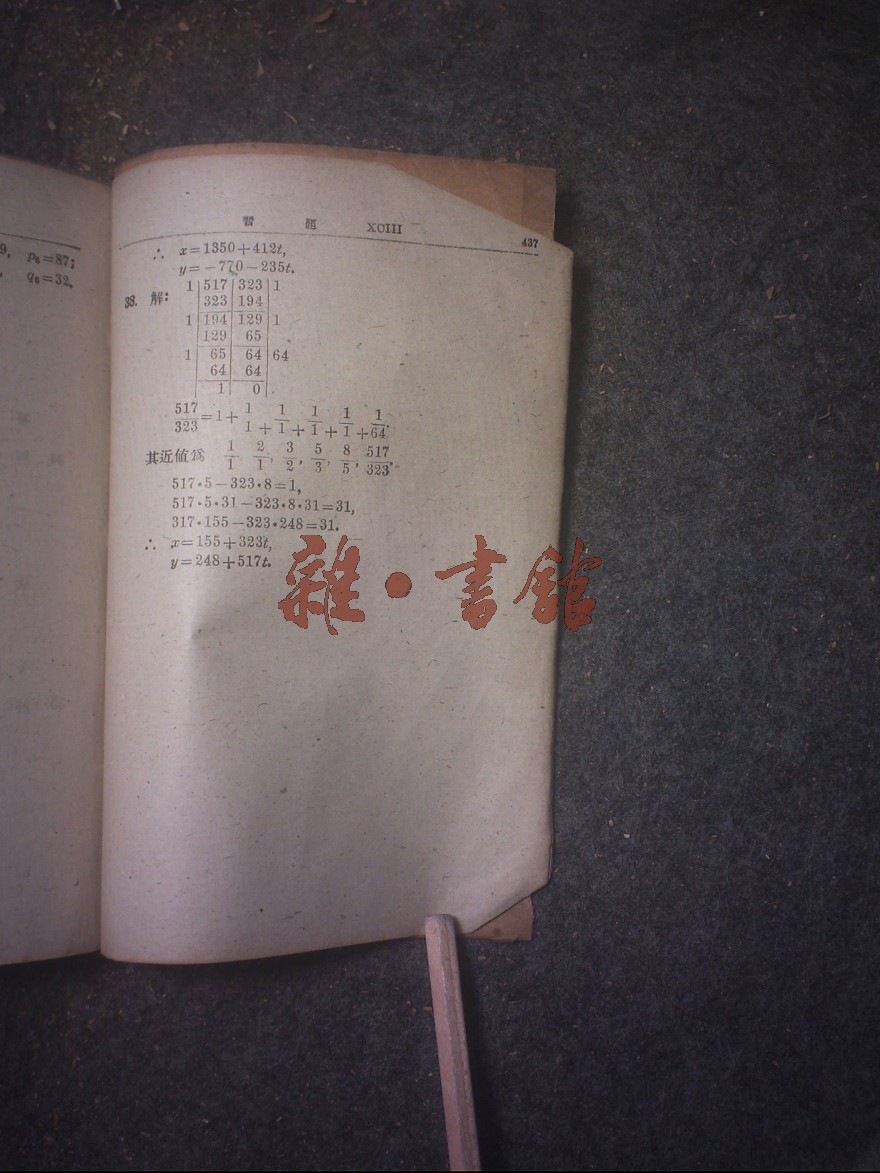 9, p₈=87;
q₈=32.
習 題 XCIII 437
∴ x=1350+412t,
y=-770-235t.
38. 解: 1 | 517 | 323 | 1
323 | 194
1 | 194 | 129 | 1
129 | 65
1 | 65 | 64 | 64
64 | 64
1 | 0
517/323=1+1/1+1/1+1/1+1/1+1/64.
其近値爲 1/1, 2/1, 3/2, 5/3, 8/5, 517/323.
517·5-323·8=1,
517·5·31-323·8·31=31,
317·155-323·248=31.
∴ x=155+323t,
y=248+517t.
雜·書館